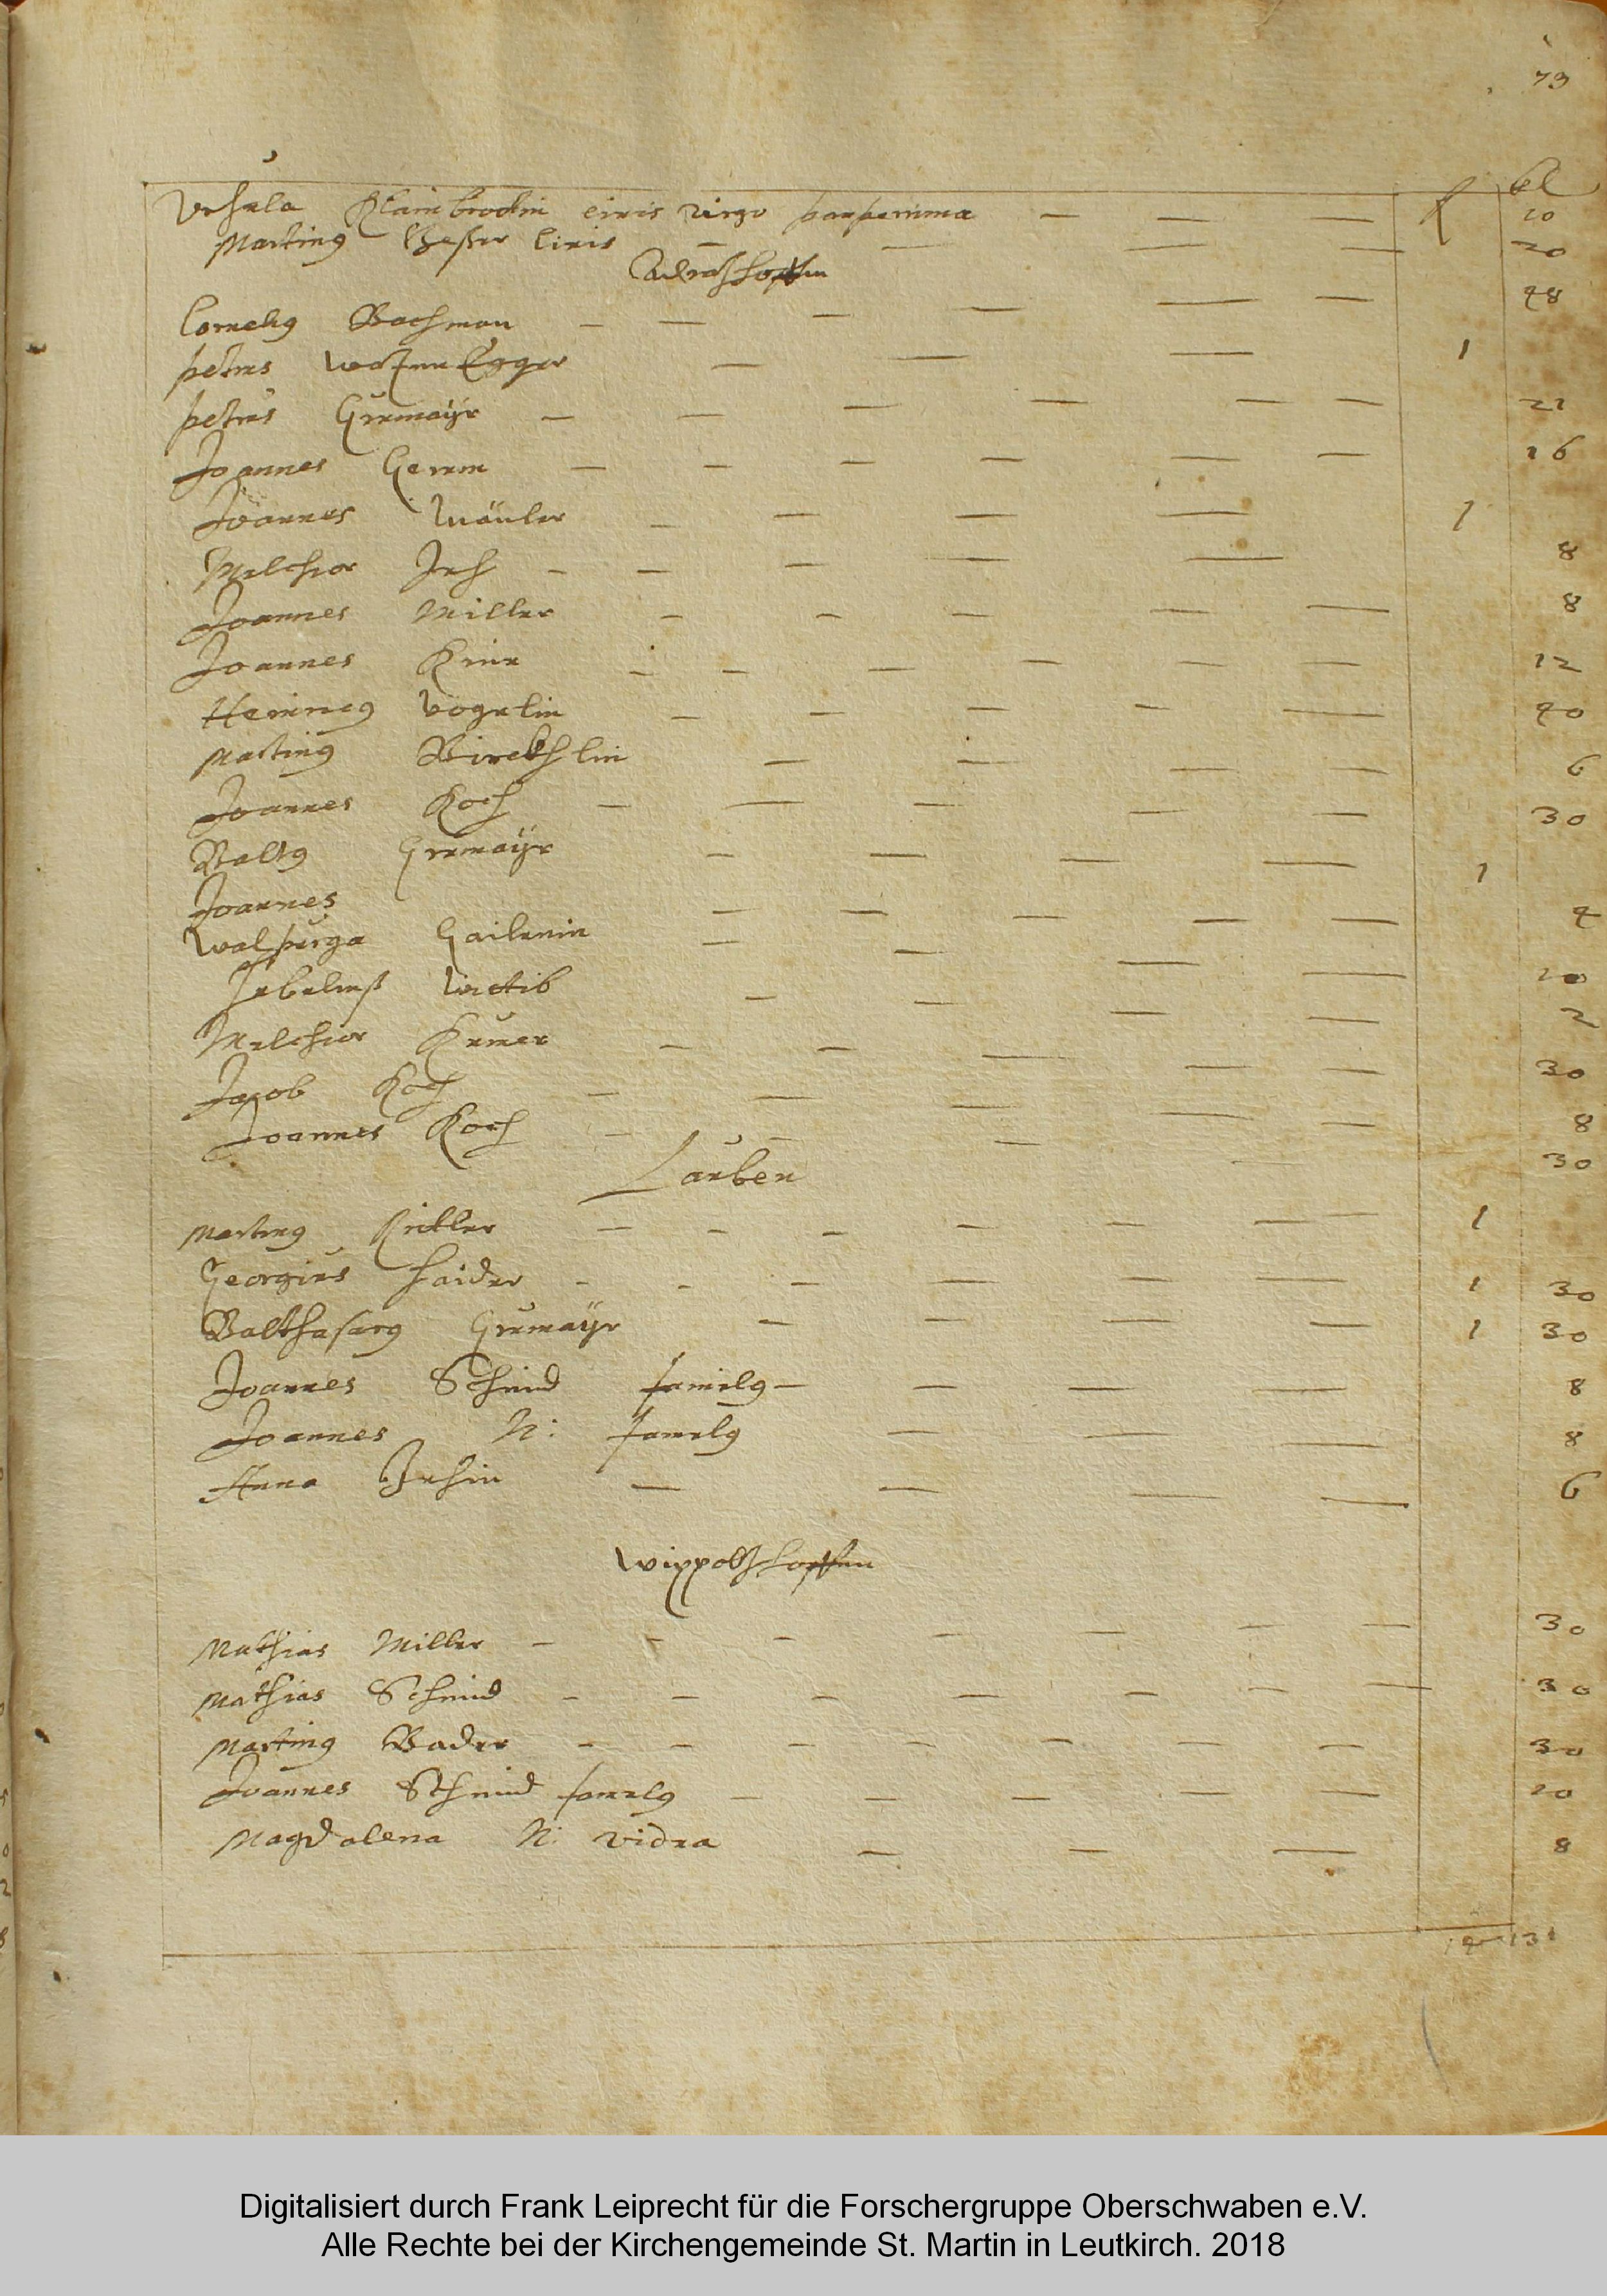 73
fl bl
Ursula Klainbrodin civis virgo pauperrima — — — 10
Martin9 Besser civis — — — — 20
Adratzhoffen
Corneli9 Bachman — — — — — — 48
Petrus — — — 1
Petrus Grumaÿr — — — — — — 21
Joannes — — — — — — 16
Joannes Mäuler — — — — 1
Melchior Jeh — — — — — 8
Joannes Miller — — — — — 8
Joannes — — — — — — 12
Heinric9 Vogelin — — — — — 40
Martin9 — — — — 6
Joannes Koch — — — — — 30
Balt9 Grumaÿr — — — — 1
Joannes — — — — — 4
Walpurga Hailenin — — — — 10
Wetib — — — — 2
Melchior — — — — — 30
Jacob Koch — — — — — 8
Joannes Koch — — — — 30
Lauben
Martin9 — — — — — — 1
Georgius Haider — — — — — — 1 30
Balthasar9 Grumaÿr — — — — 1 30
Joannes Schmid famul9 — — — — 8
Joannes N: famul9 — — — 8
Anna Jehin — — — — 6
Wippoltzhoffen
Mathias Miller — — — — — — — 30
Mathias Schmid — — — — — — — 30
Martin9 Bader — — — — — — — 30
Joannes Schmid famul9 — — — — — 10
Magdalena N: vidua — — — 8
Digitalisiert durch Frank Leiprecht für die Forschergruppe Oberschwaben e.V.
Alle Rechte bei der Kirchengemeinde St. Martin in Leutkirch. 2018